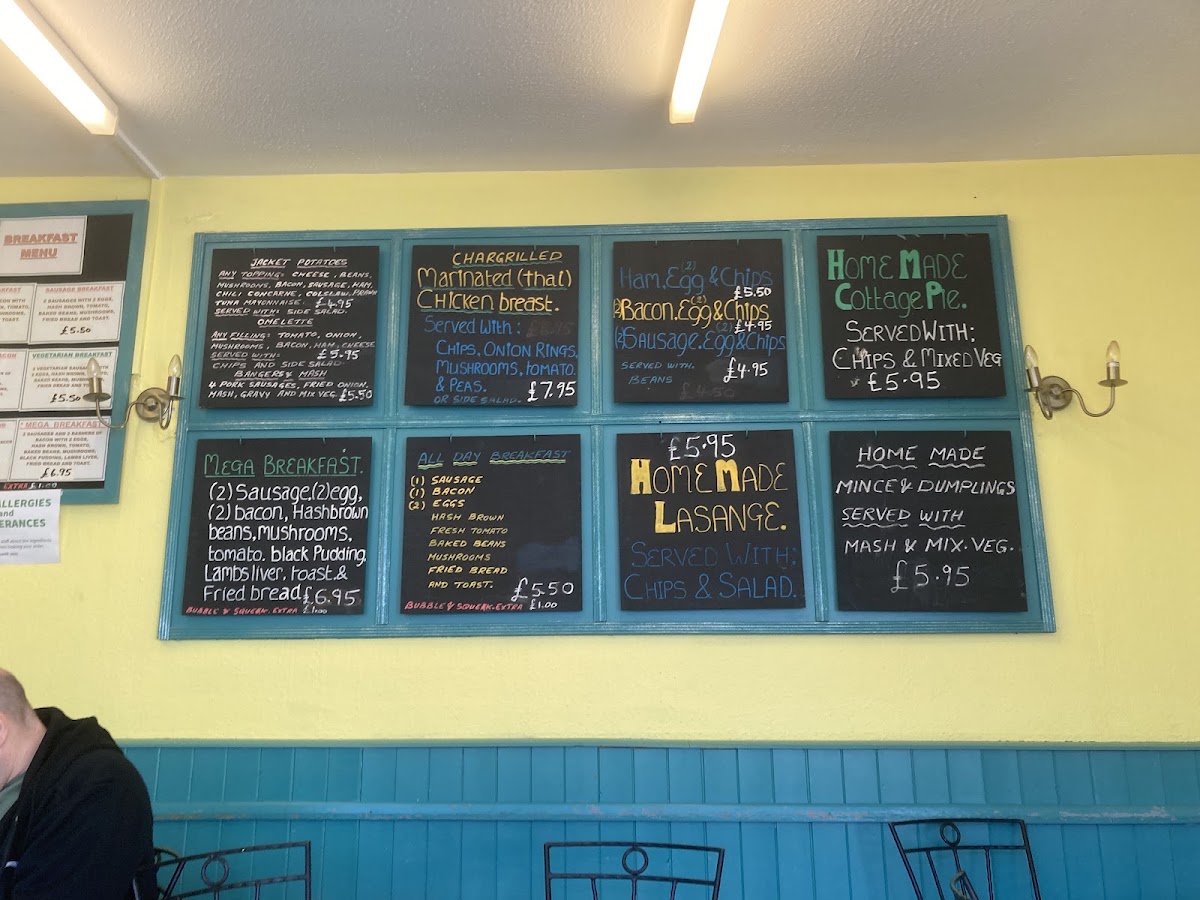 BREAKFAST
MENU
SAUSAGE BREAKFAST
2 SAUSAGES WITH 2 EGGS,
HASH BROWN, TOMATO,
BAKED BEANS, MUSHROOMS,
FRIED BREAD AND TOAST.
£5.50
VEGETARIAN BREAKFAST
£5.50
MEGA BREAKFAST
2 SAUSAGES AND 2 RASHERS OF
BACON WITH 2 EGGS,
HASH BROWN, TOMATO,
BAKED BEANS, MUSHROOMS,
BLACK PUDDING, LAMBS LIVER,
FRIED BREAD AND TOAST.
£6.95
EXTRA £1.00
ALLERGIES
and
JACKET POTATOES
ANY TOPPING: CHEESE, BEANS,
MUSHROOMS, BACON, SAUSAGE, HAM,
CHILI CONCARNE, COLSLAW, PRAWN
TUNA MAYONNAISE. £4.95
SERVED WITH: SIDE SALAD.
OMELETTE
ANY FILLING: TOMATO, ONION,
MUSHROOMS, BACON, HAM, CHEESE
SERVED WITH: £5.95
CHIPS AND SIDE SALAD
BANGERS & MASH
4 PORK SAUSAGES, FRIED ONION,
MASH, GRAVY AND MIX VEG. £5.50
CHARGRILLED
Marinated (thai)
Chicken breast.
Served with:
CHIPS, ONION RINGS,
MUSHROOMS, TOMATO.
& PEAS.
OR SIDE SALAD. £7.95
Ham, Egg (2) & Chips
£5.50
(2) Bacon, Egg (2) & Chips
£4.95
(2) Sausage, Egg (2) & Chips
SERVED WITH. £4.95
BEANS
£4.50
HOME MADE
COttage PIe.
SERVED WITH:
CHIPS & MIXED VEG
£5.95
MEGA BREAKFAST.
(2) Sausage, (2) egg,
(2) bacon, Hashbrown
beans, mushrooms,
tomato. black Pudding,
Lambs liver, toast. &
Fried bread £6.95
BUBBLE & SQUEAK. EXTRA £1.00
ALL DAY BREAKFAST
(1) SAUSAGE
(1) BACON
(2) EGGS
HASH BROWN
FRESH TOMATO
BAKED BEANS
MUSHROOMS
FRIED BREAD
AND TOAST. £5.50
BUBBLE & SQUEAK. EXTRA £1.00
£5.95
HOME MADE
LASANGE.
SERVED WITH:
CHIPS & SALAD.
HOME MADE
MINCE & DUMPLINGS
SERVED WITH
MASH & MIX. VEG.
£5.95